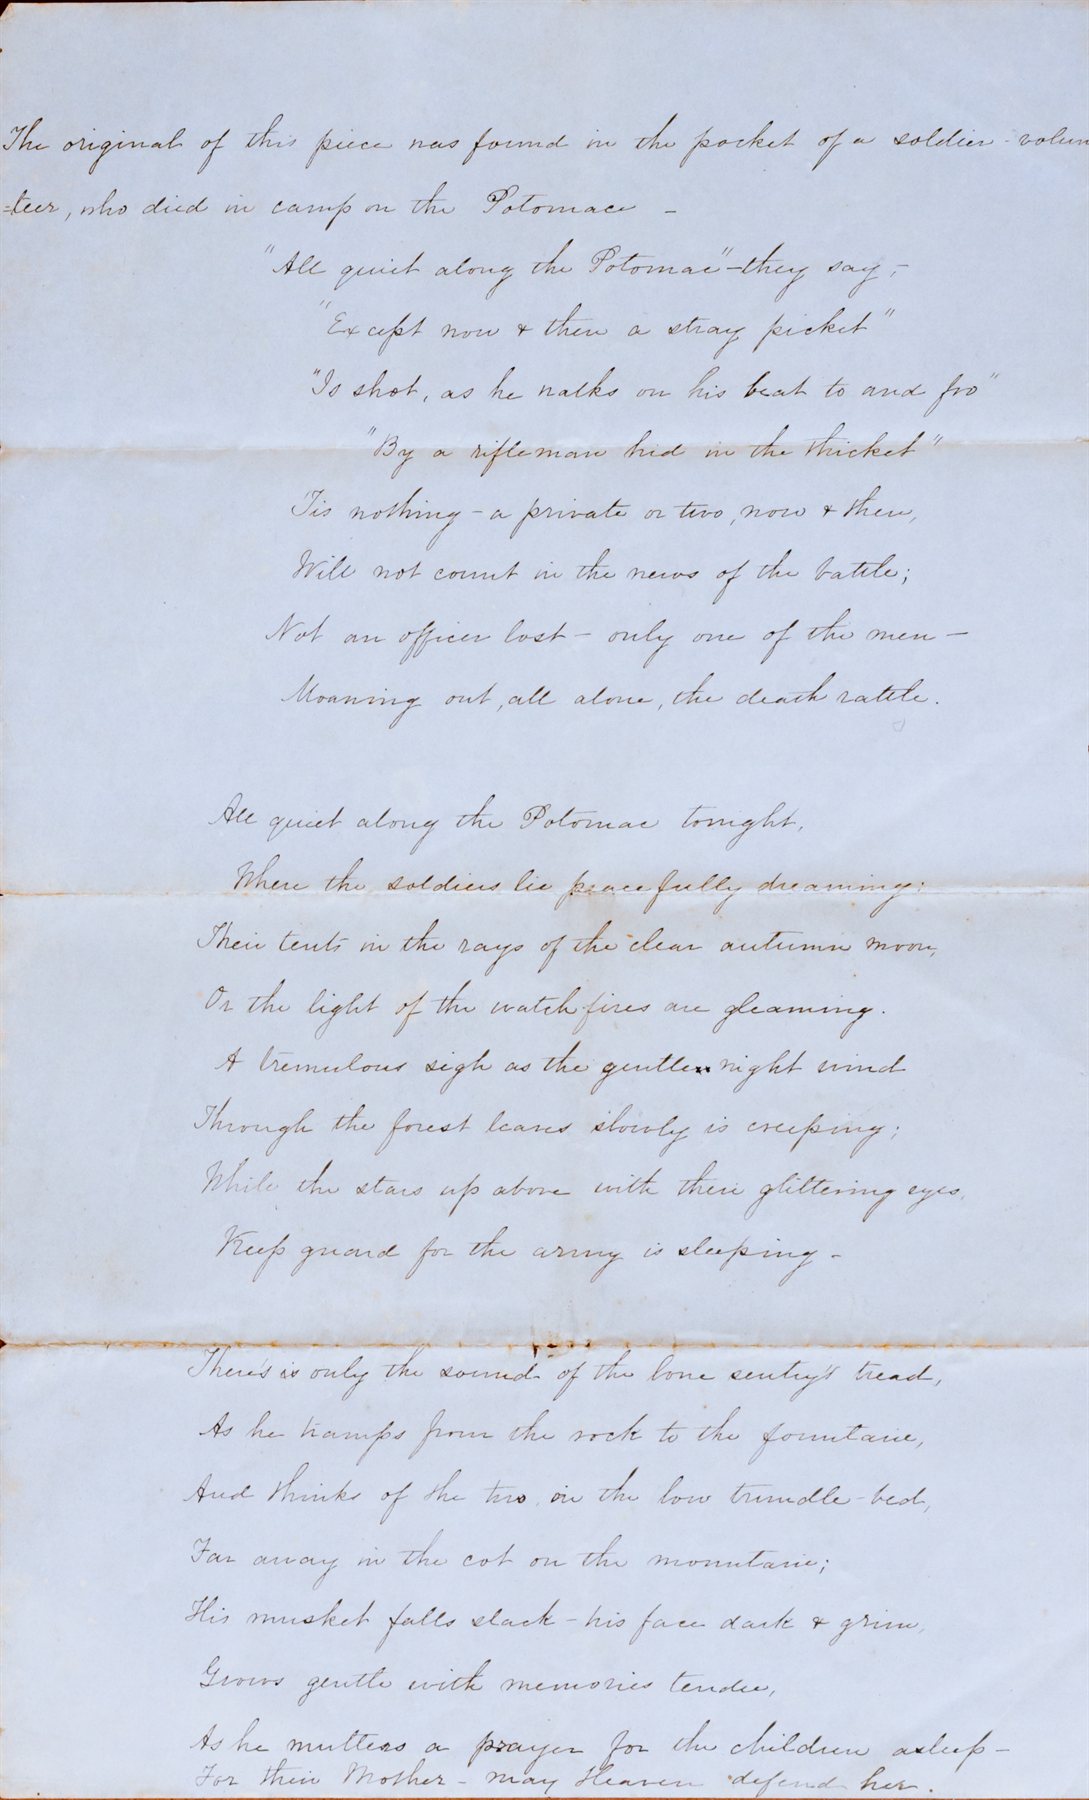 The original of this piece was found in the pocket of a soldier-volun
=teer, who died in camp on the Potomac –
"All quiet along the Potomac" – they say, –
"Except now & then a stray picket"
"Is shot, as he walks on his beat to and fro"
"By a rifleman hid in the thicket"
Tis nothing – a private or two, now & then,
Will not count in the news of the battle;
Not an officer lost – only one of the men –
Moaning out, all alone, the death rattle.
All quiet along the Potomac tonight,
Where the soldiers lie peacefully dreaming;
Their tents in the rays of the clear autumn moon,
Or the light of the watch-fires are gleaming.
A tremulous sigh as the gentle night wind
Through the forest leaves slowly is creeping;
While the stars up above with their glittering eyes,
Keep guard for the army is sleeping –
There's is only the sound of the lone sentry's tread,
As he tramps from the rock to the fountain,
And thinks of the two in the low trundle-bed,
Far away in the cot on the mountain;
His musket falls slack – his face dark & grim,
Grows gentle with memories tender,
As he mutters a prayer for the children asleep –
For their Mother – may Heaven defend her.